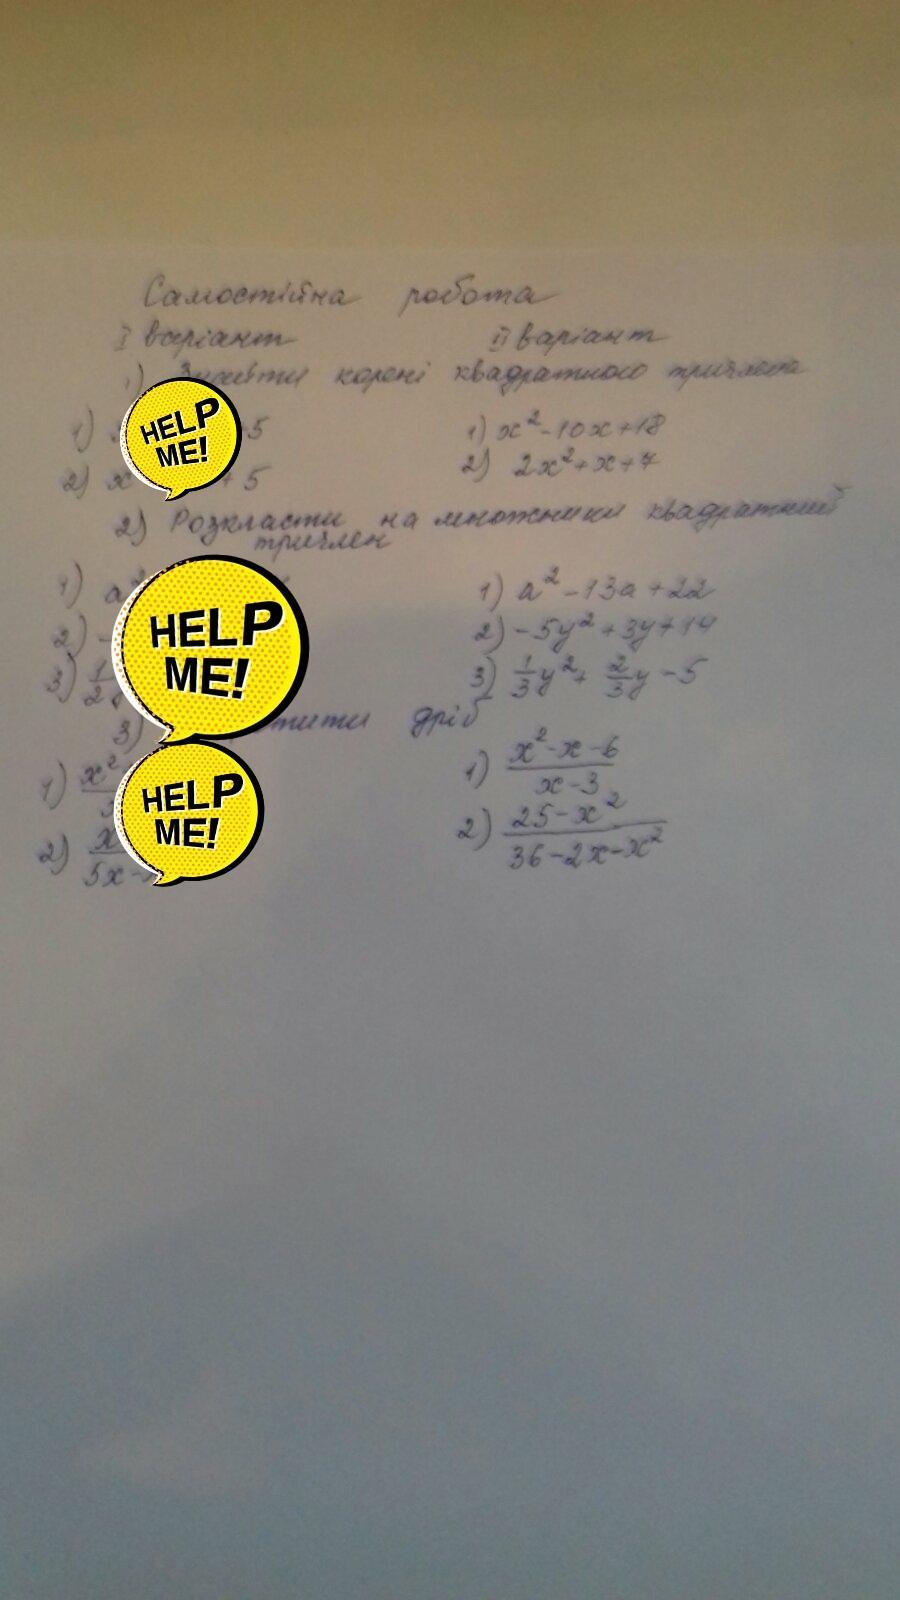 Самостійна робота
I варіант II варіант
1) корені квадратного тричлена
1) 5 1) x² - 10x + 18
2) x + 5 2) 2x² + x + 7
2) Розкласти на множники квадратний
тричлен
1) a² 1) a² - 13a + 22
2) - 2) -5y² + 3y + 14
3) 1/2 3) 1/3 y² + 2/3 y - 5
3) дріб
1) x² 1) x² - x - 6 / x - 3
2) x / 5x - 2) 25 - x² / 36 - 2x - x²
HELP
ME!
HELP
ME!
HELP
ME!